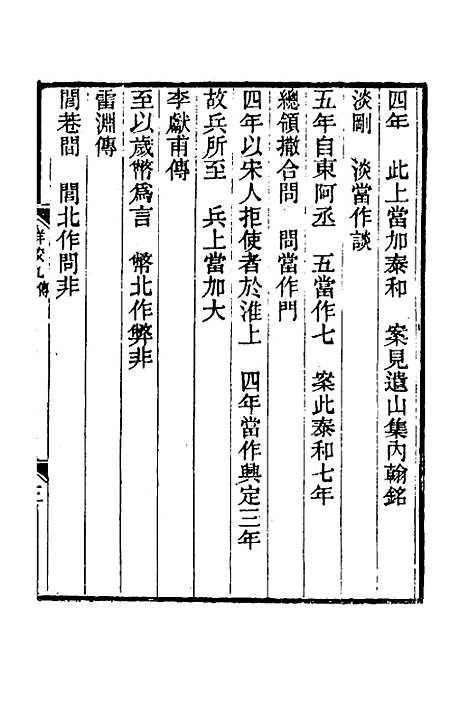 四年　此上當加泰和　案見遺山集內翰銘
淡剛　淡當作談
五年自東阿丞　五當作七　案此泰和七年
總領撒合問　問當作門
四年以宋人拒使者於淮上　四年當作興定三年
故兵所至　兵上當加大
李獻甫傳
至以歲幣爲言　幣北作弊非
雷淵傳
閭巷間　閭北作問非